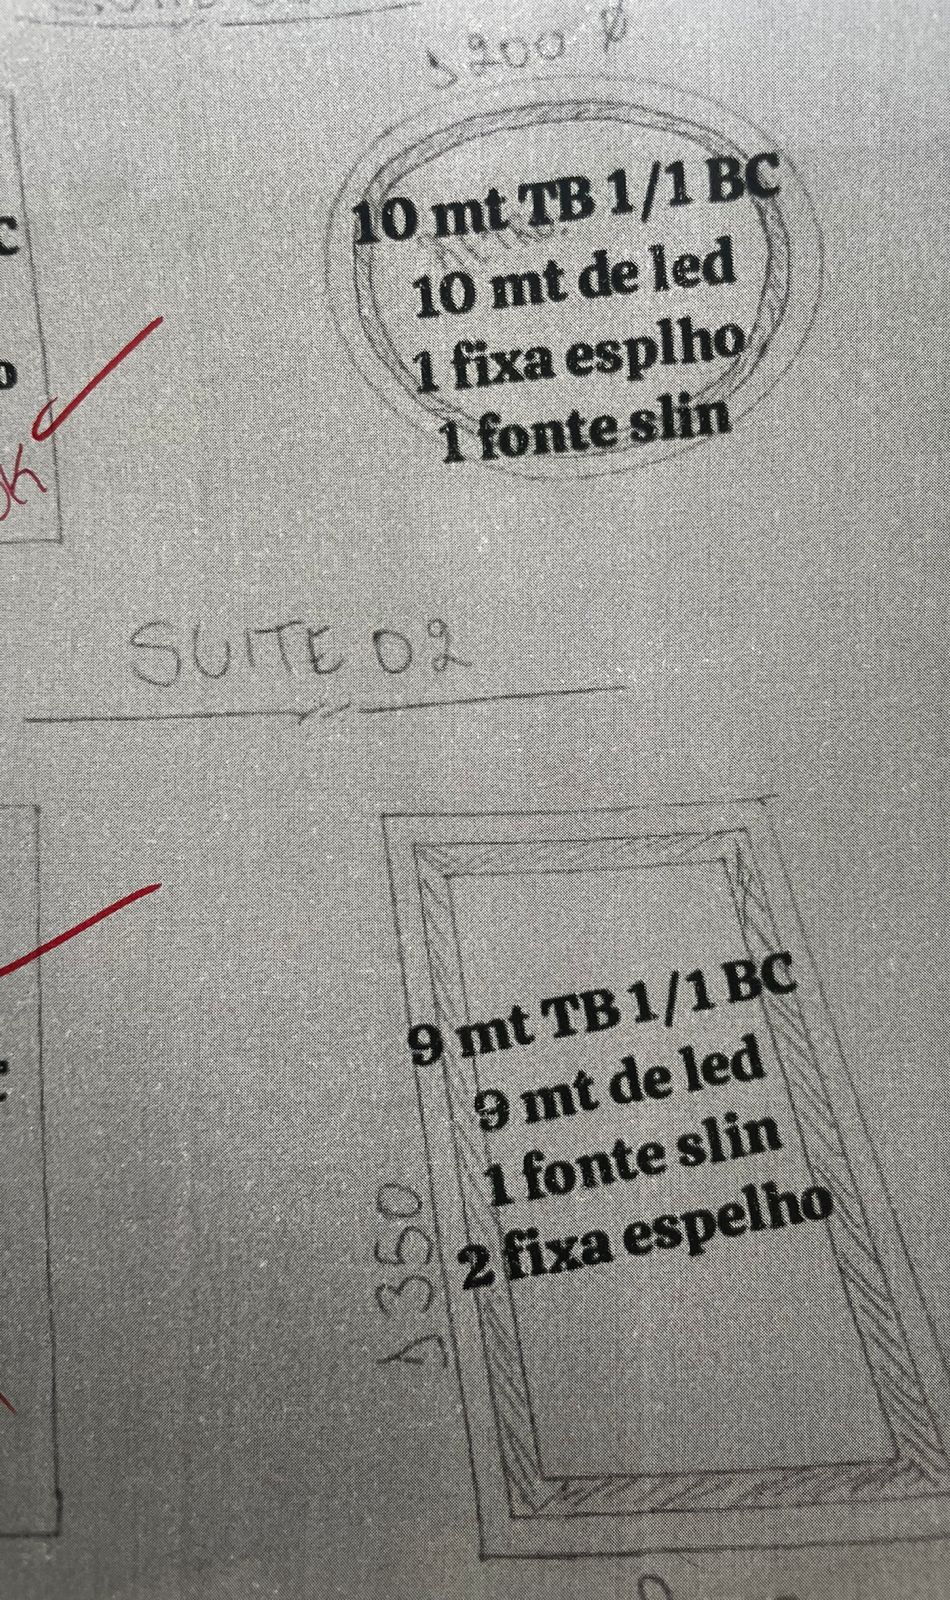 200 Ø
10 mt TB 1/1 BC
10 mt de led
1 fixa esplho
1 fonte slin
OK
SUITE 02
9 mt TB 1/1 BC
9 mt de led
1 fonte slin
2 fixa espelho
350